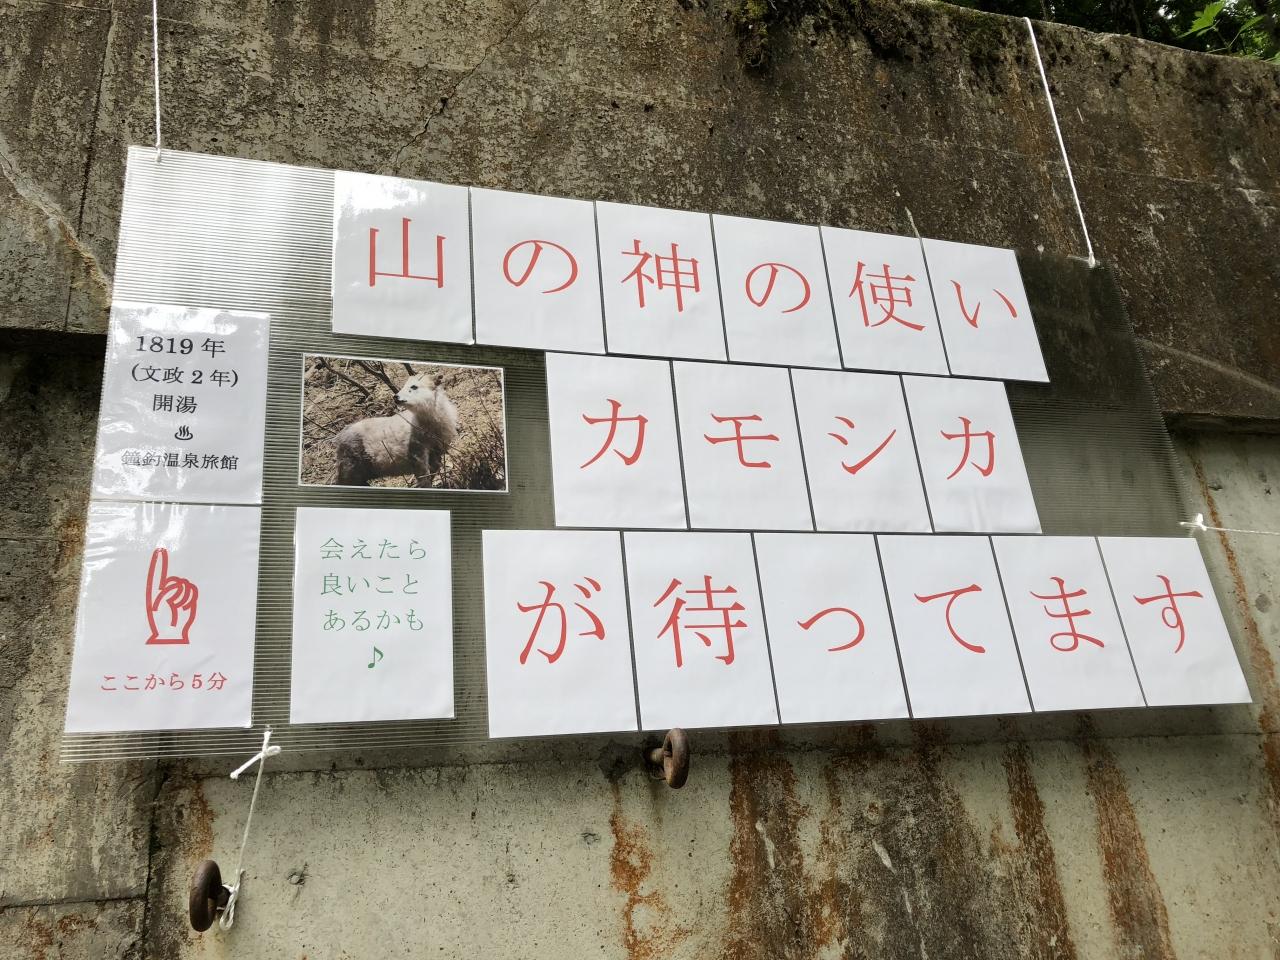 山の神の使い
カモシカ
が待ってます
1819年
(文政2年)
開湯
♨
鐘釣温泉旅館
ここから5分
会えたら
良いこと
あるかも
♪